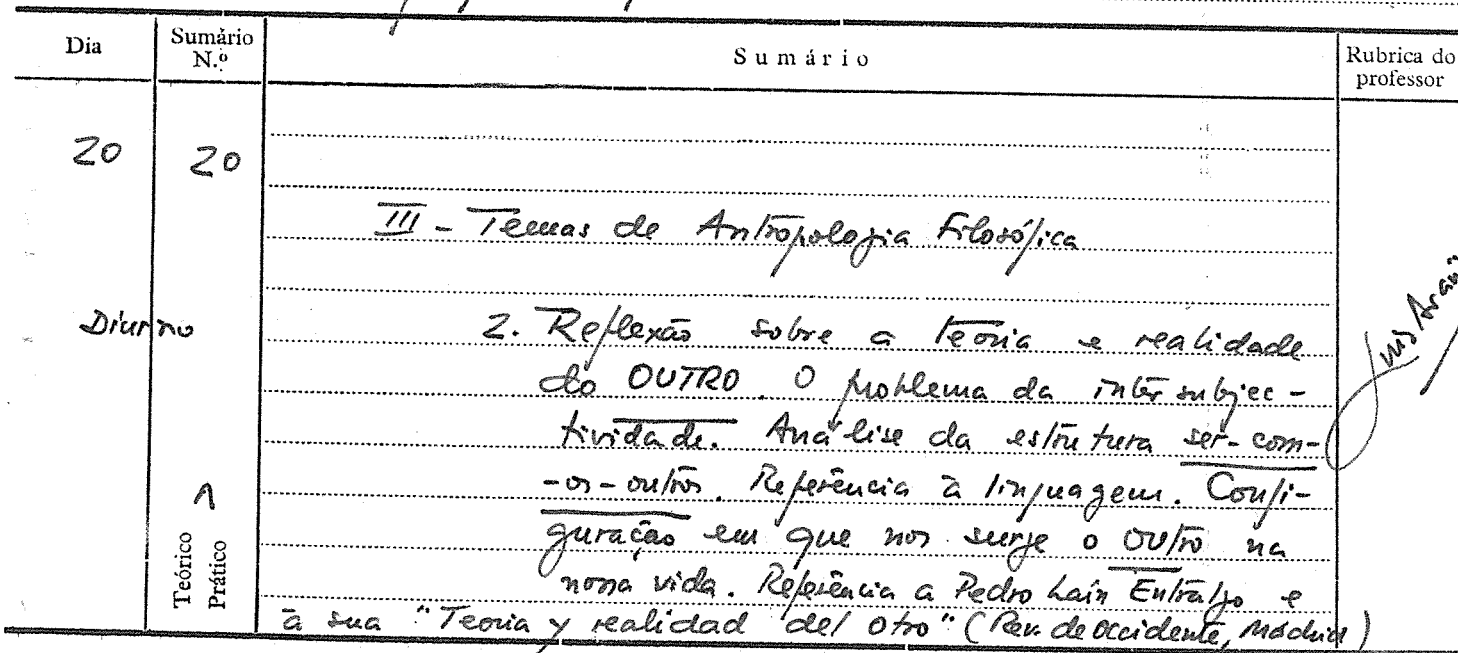 Dia Sumário N.º Sumário Rubrica do professor
20 20
III - Temas de Antropologia Filosófica
Diurno 2. Reflexão sobre a teoria e realidade
do OUTRO. O problema da intersubjec-
tividade. Análise da estrutura ser-com-
-os-outros. Referência à linguagem. Confi-
guração em que nos surge o OUTRO na
nossa vida. Referência a Pedro Laín Entralgo e
à sua "Teoria y realidad del otro" (Rev. de Occidente, Madrid)
Teórico
Prático
Luís Araújo